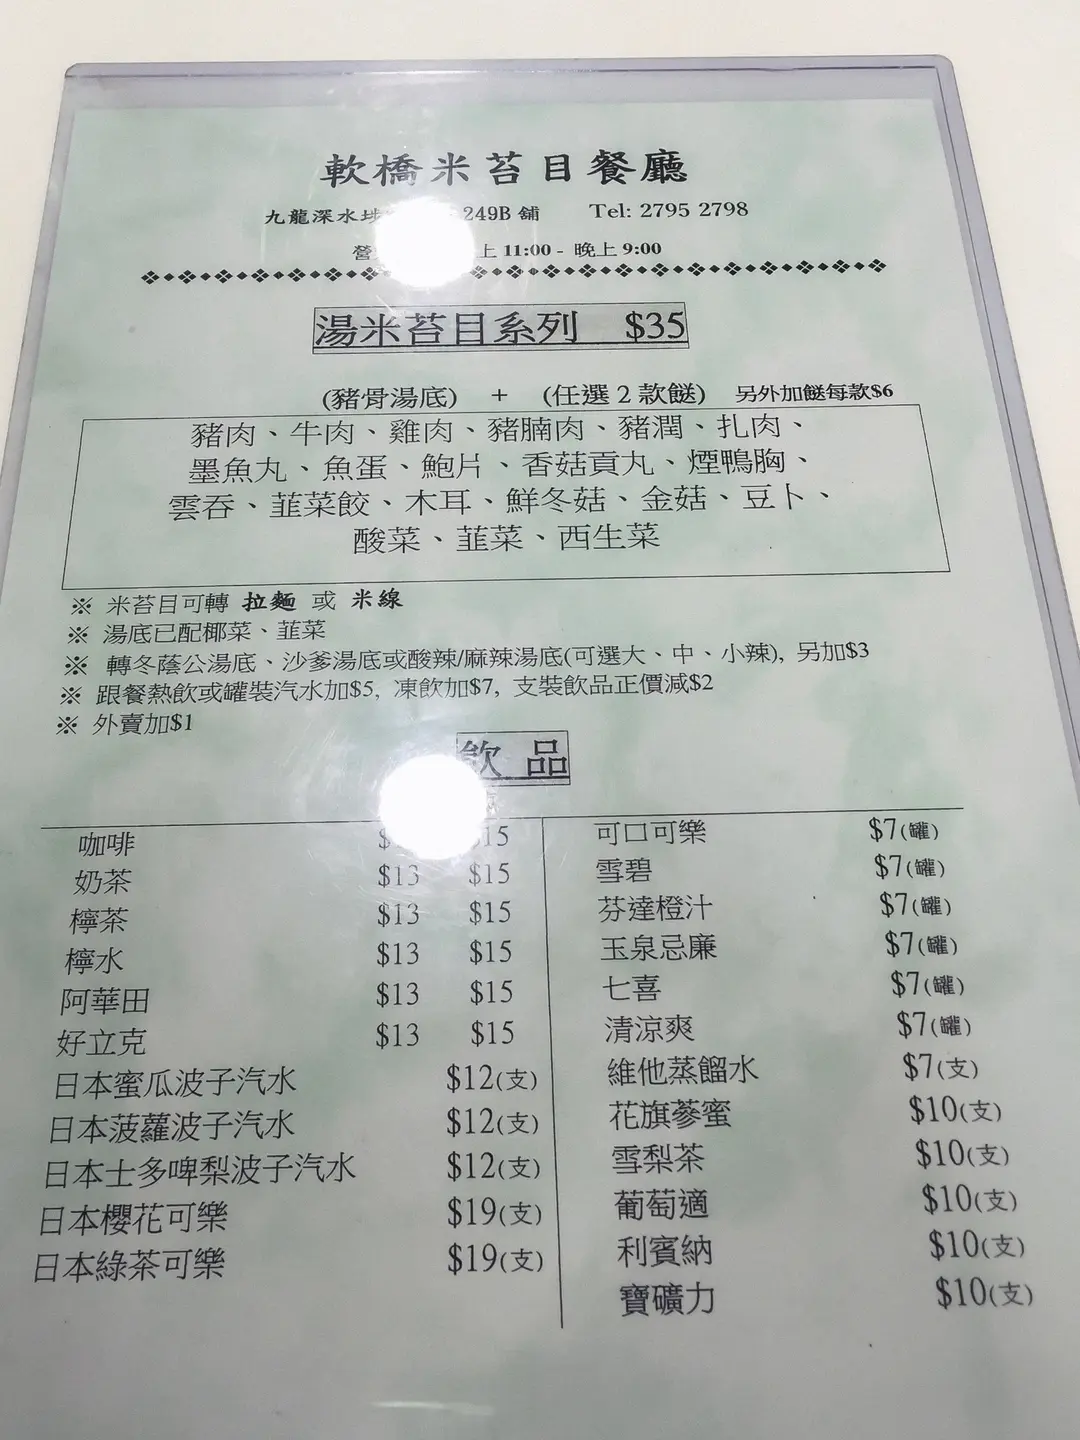 軟橋米苔目餐廳
九龍深水埗 249B 舖 Tel: 2795 2798
營 上 11:00 - 晚上 9:00
湯米苔目系列 $35
(豬骨湯底) + (任選 2 款餸) 另外加餸每款$6
豬肉、牛肉、雞肉、豬腩肉、豬潤、扎肉、
墨魚丸、魚蛋、鮑片、香菇貢丸、煙鴨胸、
雲吞、韮菜餃、木耳、鮮冬菇、金菇、豆卜、
酸菜、韮菜、西生菜
※ 米苔目可轉 拉麵 或 米線
※ 湯底已配椰菜、韮菜
※ 轉冬蔭公湯底、沙爹湯底或酸辣/麻辣湯底(可選大、中、小辣), 另加$3
※ 跟餐熱飲或罐裝汽水加$5, 凍飲加$7, 支裝飲品正價減$2
※ 外賣加$1
飲 品
咖啡 $15
奶茶 $13 $15
檸茶 $13 $15
檸水 $13 $15
阿華田 $13 $15
好立克 $13 $15
日本蜜瓜波子汽水 $12(支)
日本菠蘿波子汽水 $12(支)
日本士多啤梨波子汽水 $12(支)
日本櫻花可樂 $19(支)
日本綠茶可樂 $19(支)
可口可樂 $7(罐)
雪碧 $7(罐)
芬達橙汁 $7(罐)
玉泉忌廉 $7(罐)
七喜 $7(罐)
清涼爽 $7(罐)
維他蒸餾水 $7(支)
花旗蔘蜜 $10(支)
雪梨茶 $10(支)
葡萄適 $10(支)
利賓納 $10(支)
寶礦力 $10(支)